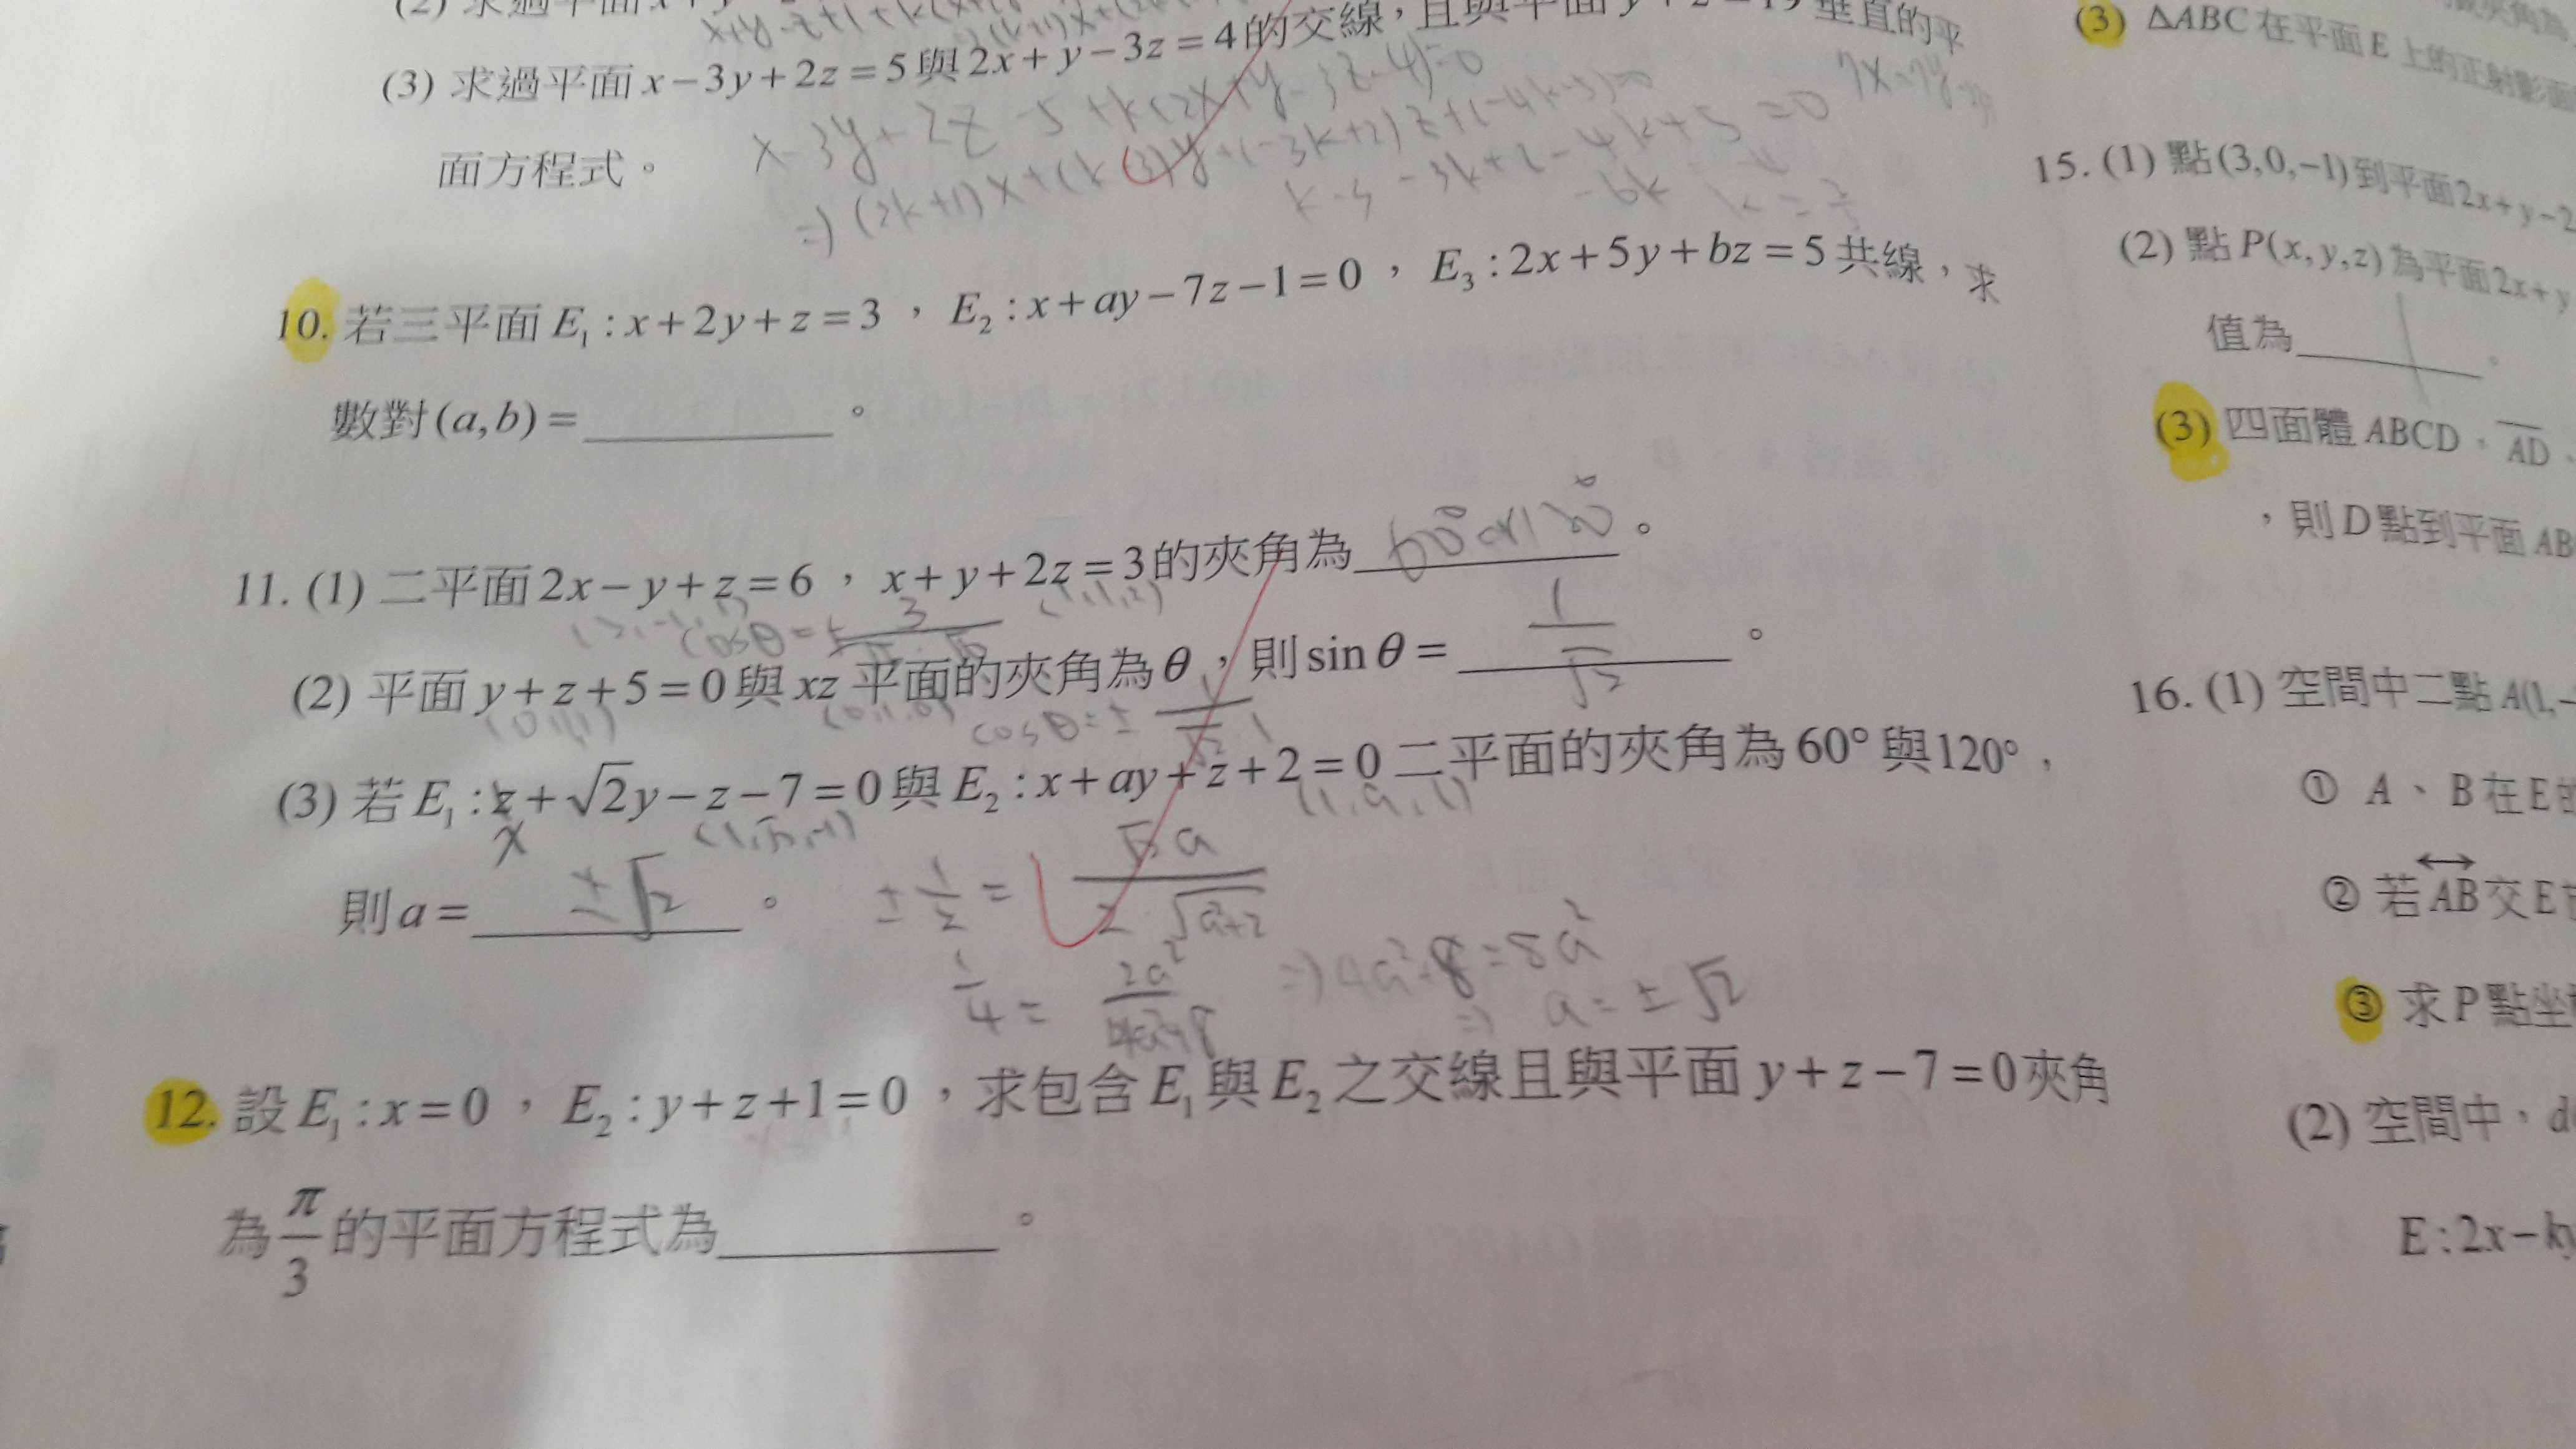 (3) 求過平面 x-3y+2z=5與2x+y-3z=4的交線，且與平面 垂直的平
x-3y+2z-5+k(2x+y-3z-4)=0
面方程式。
10. 若三平面 E₁:x+2y+z=3，E₂:x+ay-7z-1=0，E₃:2x+5y+bz=5共線，求
數對(a,b)=______。
11. (1) 二平面2x-y+z=6，x+y+2z=3的夾角為 60° or 120°。
(1,1,2)
cosθ=± 3
(2) 平面 y+z+5=0與 xz 平面的夾角為θ，則sinθ= 1/√2。
(0,1,1) (0,1,0) cosθ=± 1/√2·1
(3) 若 E₁:z+√2y-z-7=0與 E₂:x+ay+z+2=0二平面的夾角為60°與120°，
x (1,√2,-1) (1,a,1)
則a= ±√2。 ±1/2 = √2a/2·√a²+2
1/4 = 2a²/4a²+8 ⇒ 4a²+8=8a²
⇒ a=±√2
12. 設E₁:x=0，E₂:y+z+1=0，求包含E₁與E₂之交線且與平面 y+z-7=0夾角
為π/3的平面方程式為______。
(3) △ABC 在平面E 上的正射影面
15. (1) 點(3,0,-1)到平面2x+y-2
(2) 點P(x,y,z)為平面2x+y
值為______。
(3) 四面體 ABCD，AD
，則D點到平面 AB
16. (1) 空間中二點A(1,-
① A、B在E的
② 若AB交E
③ 求P點坐
(2) 空間中，
E:2x-ky